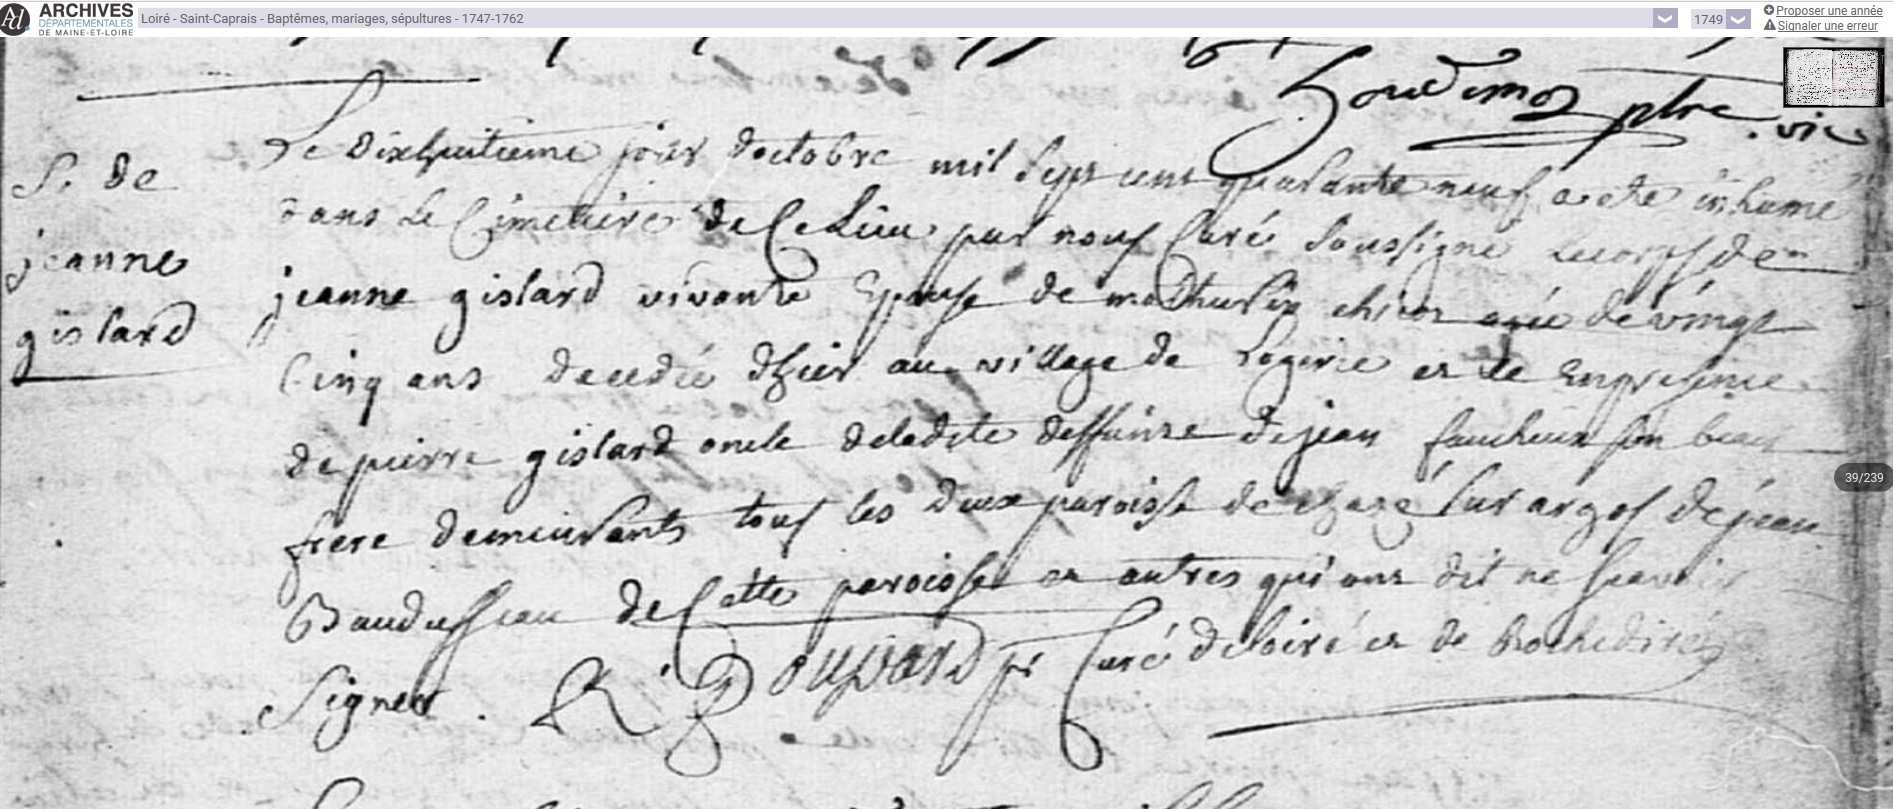 ARCHIVES
DÉPARTEMENTALES
DE MAINE-ET-LOIRE
Loiré - Saint-Caprais - Baptêmes, mariages, sépultures - 1747-1762
1749
Proposer une année
Signaler une erreur
ptre vic
S. de
jeanne
gislard
Le dixhuitieme jour doctobre mil sept cent quarante neuf a ete inhumé
dans le Cimetiere de Ce Lieu par nous Curé soussigné le corps de
jeanne gislard vivante Epouse de mathurin agée de vingt
Cinq ans decedée d'hier au village de Logerie et ce En presence
de pierre gislard oncle deladite deffunte de jean faucheux son beau
frere demeurants tous les deux paroisse de chazé sur argos de jean
Bandusseau de Cette paroisse et autres qui ont dit ne sçavoir
signer. R. Poupard pr Curé de loiré et de Rochediré
39/239